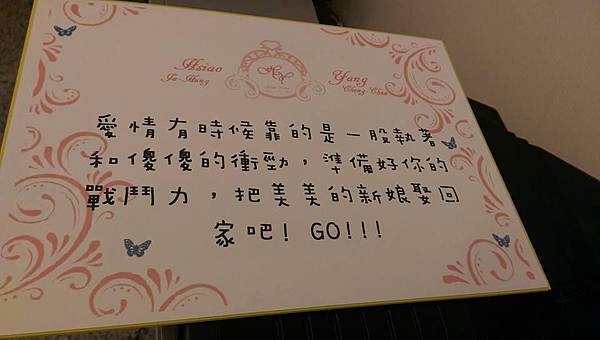 Hsiao Yang
Ju-Hung Cheng-Chao
HY
愛情有時候靠的是一股執著
和傻傻的衝勁，準備好你的
戰鬥力，把美美的新娘娶回
家吧! GO!!!